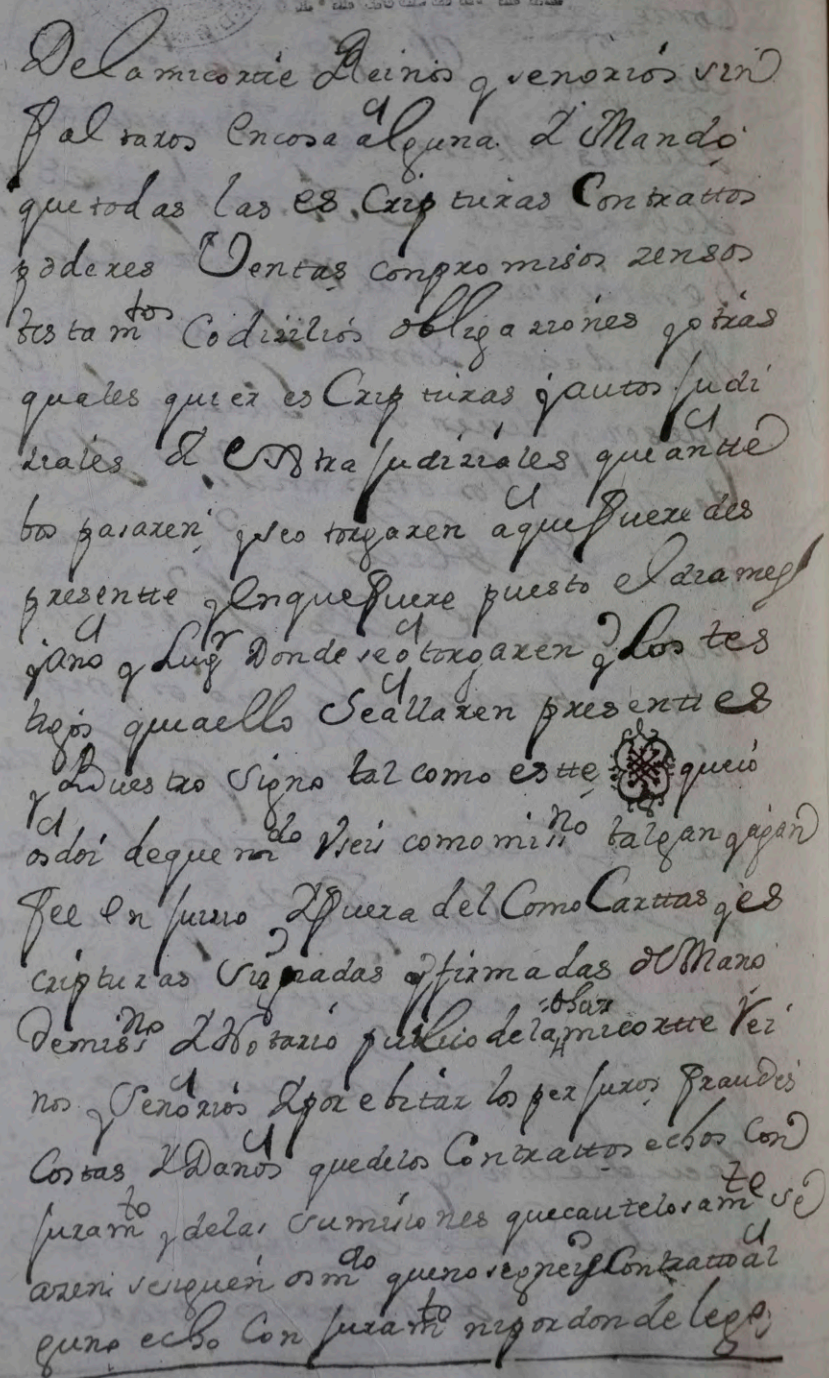 Delamicortte Reinos y senorios sin
faltaros encosa alguna. Y Mando
quetodas las escripturas Contrattos
poderes Ventas conpromisos zensos
testamtos Codizilios obligaziones y otras
qualesquier esCripturas y autos Judi
ziales Y Extra judiziales que antte
bos pasaren, y se otorgaren aque fueredes
presentte y enque fuere puesto el dia mes
y año y Lugr Donde se otorgaren y Los tes
tigos que aello Seallaren presenttes
y Vuestro Signo tal como estte que io
os doi de que mdo Useis como mi sno balgan y agan
fee en juizio Y fuera del Como Carttas y es
cripturas Signadas y firmadas de Mano
demi sno Y Notario publico de la mi cortte Rei
nos y Senorios Y por ebitar los perjuros fraudes
Costas Y Daños que delos Contrattos echos Con
juramto y delas sumisiones que cautelosamte se
azen se siguen os mdo que no signeis Contratto al
guno echo Con juramto ni por donde lego